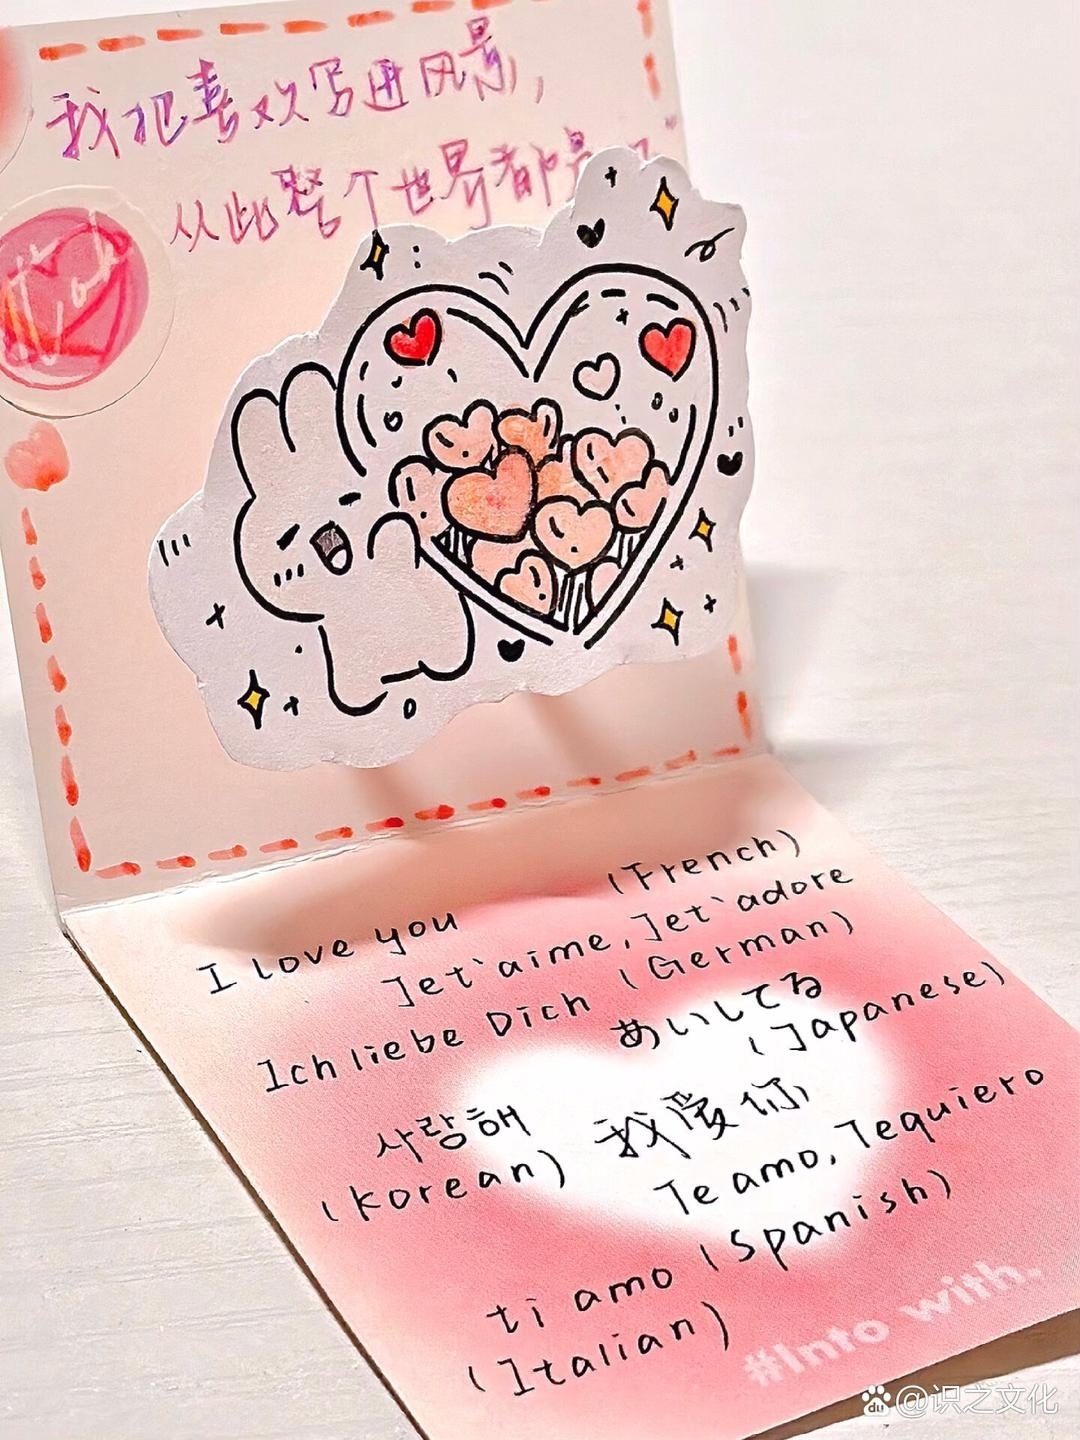 我把喜欢写进风景,
从此整个世界都是
I love you
(French)
Je t`aime, Je t`adore
Ich liebe Dich (German)
めいしてる
(Japanese)
사랑해
(Korean)
我爱你
Te amo, Te quiero
(Spanish)
ti amo
(Italian)
#Into with.
@识之文化